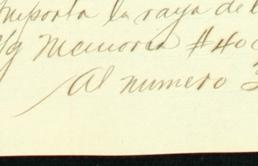 importa la raya de
Memoria #40
Al numero 3